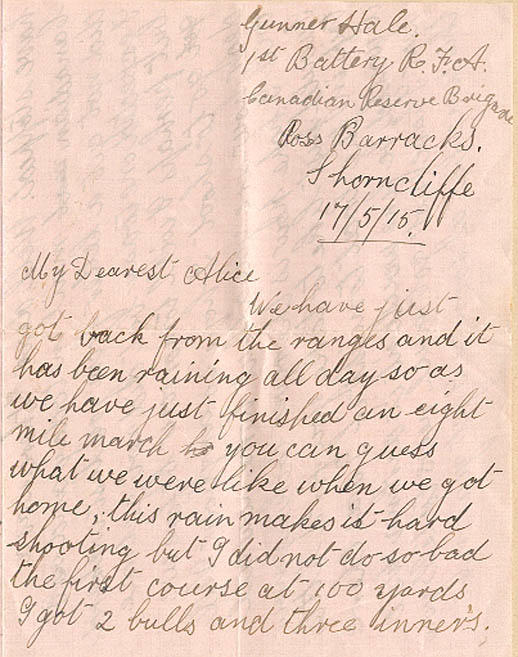 Gunner Hale.
1st Battery R.F.A.
Canadian Reserve Brigade
Ross Barracks.
Shorncliffe
17/5/15.
My Dearest Alice
We have just
got back from the ranges and it
has been raining all day so as
we have just finished an eight
mile march you can guess
what we were like when we got
home, this rain makes it hard
shooting but I did not do so bad
the first course at 100 yards
I got 2 bulls and three inner's.